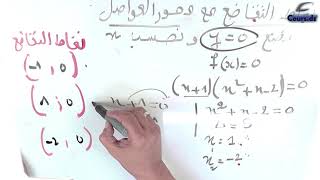 التقاطع مع محور الفواصل
نضع y=0 ونحسب x
f(x)=0
(x+1)(x²+x-2)=0
x+1=0 | x²+x-2=0
x=1
x₂=-2
نقاط التقاطع
(-1 ; 0)
(1 ; 0)
(-2 ; 0)
Cours.dz